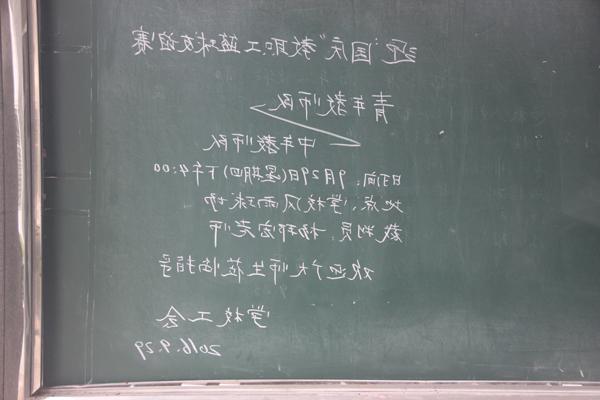 迎"国庆"教职工篮球友谊赛
青年教师队
中年教师队
时间:9月29日(星期四)下午4:00
地点:学校风雨球场
裁判员:杨 宏老师
欢迎广大师生莅临指导
学校工会
2016.9.29